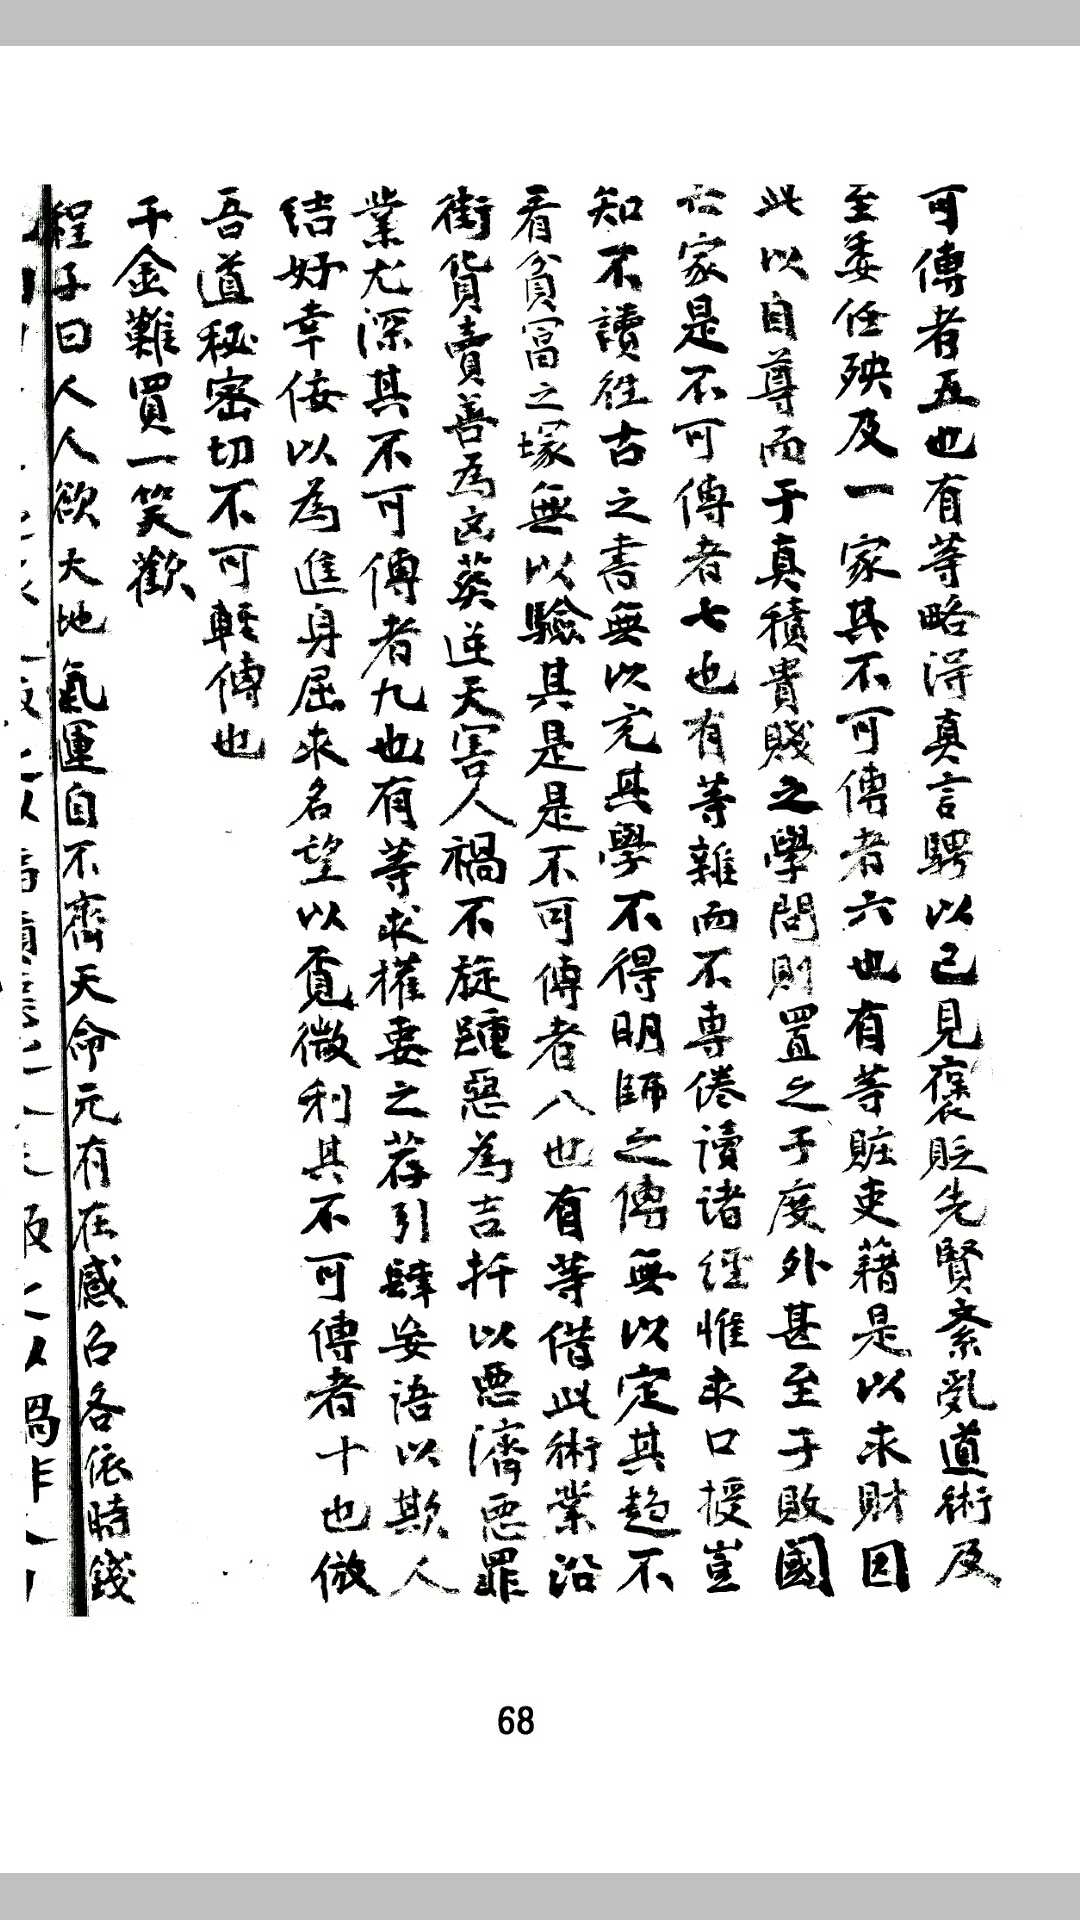 可傳者五也有等略得真言騁以己見褒貶先賢紊亂道術及
至委任殃及一家其不可傳者六也有等賍吏藉是以求財因
此以自尊而于真積貴賤之學問則置之于度外甚至于敗國
亡家是不可傳者七也有等雜而不專倦讀諸經惟求口授豈
知不讀徃古之書無以充其學不得明師之傳無以定其趋不
看貧富之塚無以驗其是是不可傳者八也有等借此術業沿
街貨賣善為凶葬逆天害人禍不旋踵惡為吉扦以惡濟惡罪
業尤深其不可傳者九也有等求權要之荐引肆妄語以欺人
結好幸佞以為進身屈求名望以覔微利其不可傳者十也倣
吾道秘密切不可輕傳也
千金難買一笑歡
程子曰人人欲大地氣運自不齊天命元有在感召各依時錢